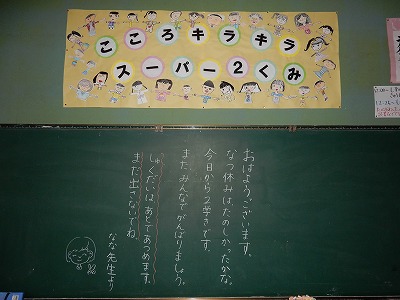 こころキラキラ
スーパー2くみ
おはようございます。
なつ休みは、たのしかったかな。
今日から2学きです。
また、みんなでがんばりましょう。
しゅくだいは、あとであつめます。
まだ出さないでね。
なな先生より